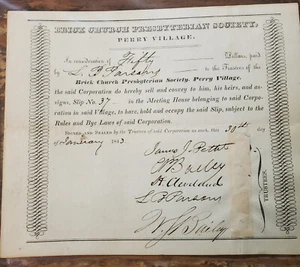 BRICK CHURCH PRESBYTERIAN SOCIETY,
PERRY VILLAGE.
In consideration of Fifty Dollars, paid
by L. B. Parsons to the Trustees of the
Brick Church Presbyterian Society, Perry Village,
the said Corporation do hereby sell and convey to him, his heirs, and as-
signs, Slip No. 37 in the Meeting House belonging to said Corpo-
ration in said Village, to have, hold and occupy the said Slip, subject to the
Rules and Bye Laws of said Corporation.
SIGNED AND SEALED by the Trustees of said Corporation as such, this 30th day
of January
James J.
Bailey
H. Cleveland
L. B. Parsons
TRUSTEES.